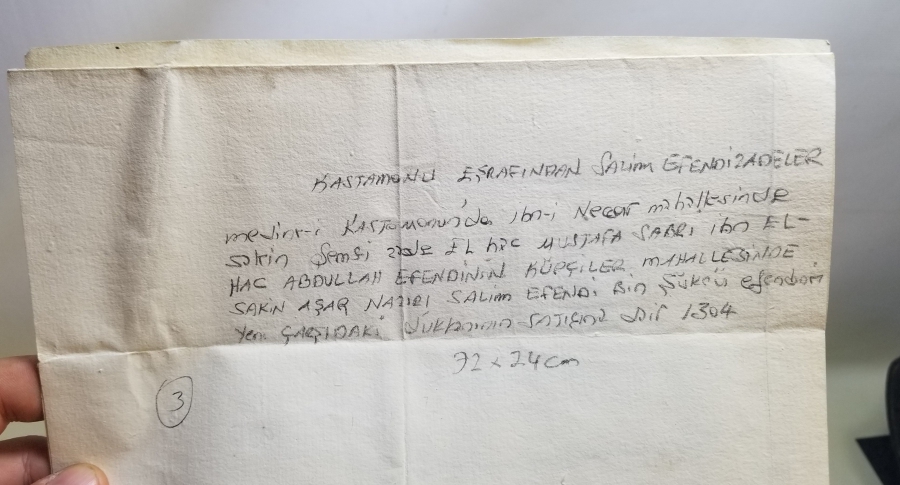 KASTAMONU EŞRAFINDAN SALİM EFENDİZADELER
medine-i KASTAMONU'da ibn-i Neccar mahallesinde
sakin Şemsi zade EL hac MUSTAFA SABRİ ibn EL-
HAC ABDULLAH EFENDİNİN KÜPÇİLER MAHALLESİNDE
SAKİN AŞAR NAZIRI SALİM EFENDİ Bin Şükrü efendinin
Yeni ÇARŞIDAKİ dükkanının SATIŞINA dair 1304
72 x 24 cm
3